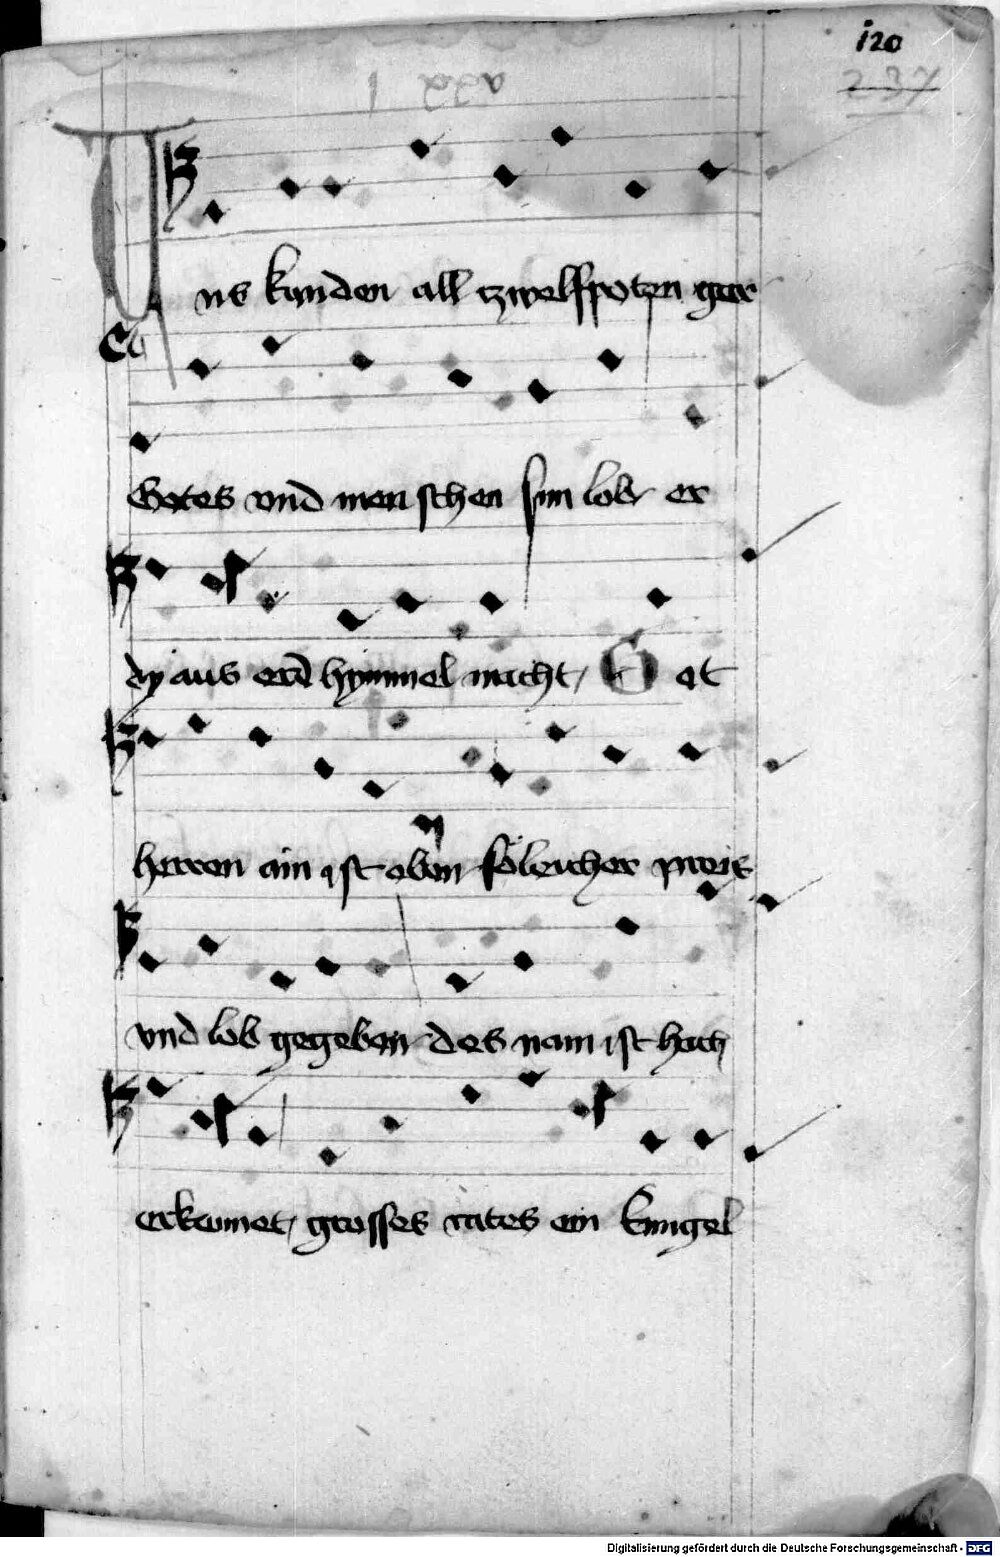 120
237
Uns kunden all tzwelfpotzen gar
Gotes vnd menschen sun lob er
dy aus erd hymmel macht / Got
herren ain ist eben sölicher preis
vnd lob gegeben des nam ist hoch
erkennet / grosses rates ein Engel
Digitalisierung gefördert durch die Deutsche Forschungsgemeinschaft - DFG